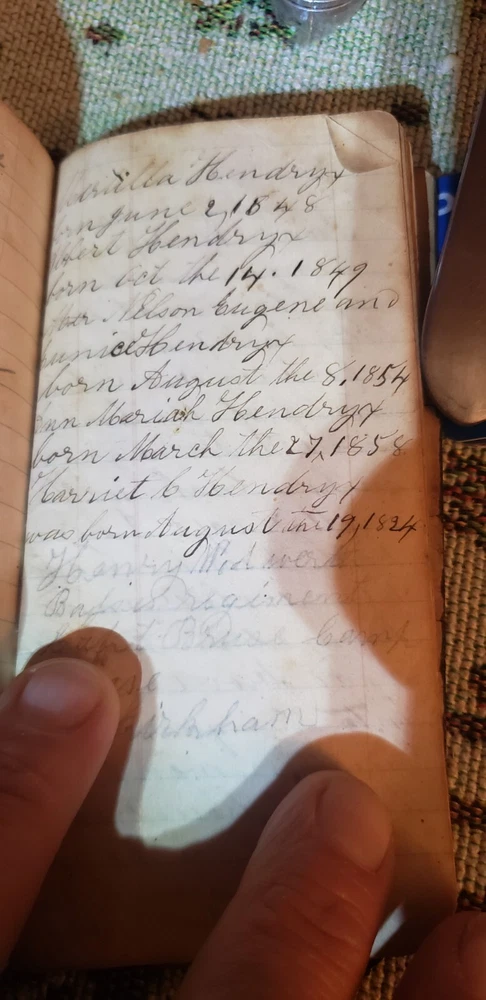 Hendryx
born June 2, 1848
Hendryx
born Oct the 14. 1849
Nelson Eugene and
Eunice Hendryx
born August the 8, 1854
Ann Mariah Hendryx
born March the 27, 1858
Harriet C Hendryx
was born August the 19, 1824
Henry
regiment
Bruse Camp